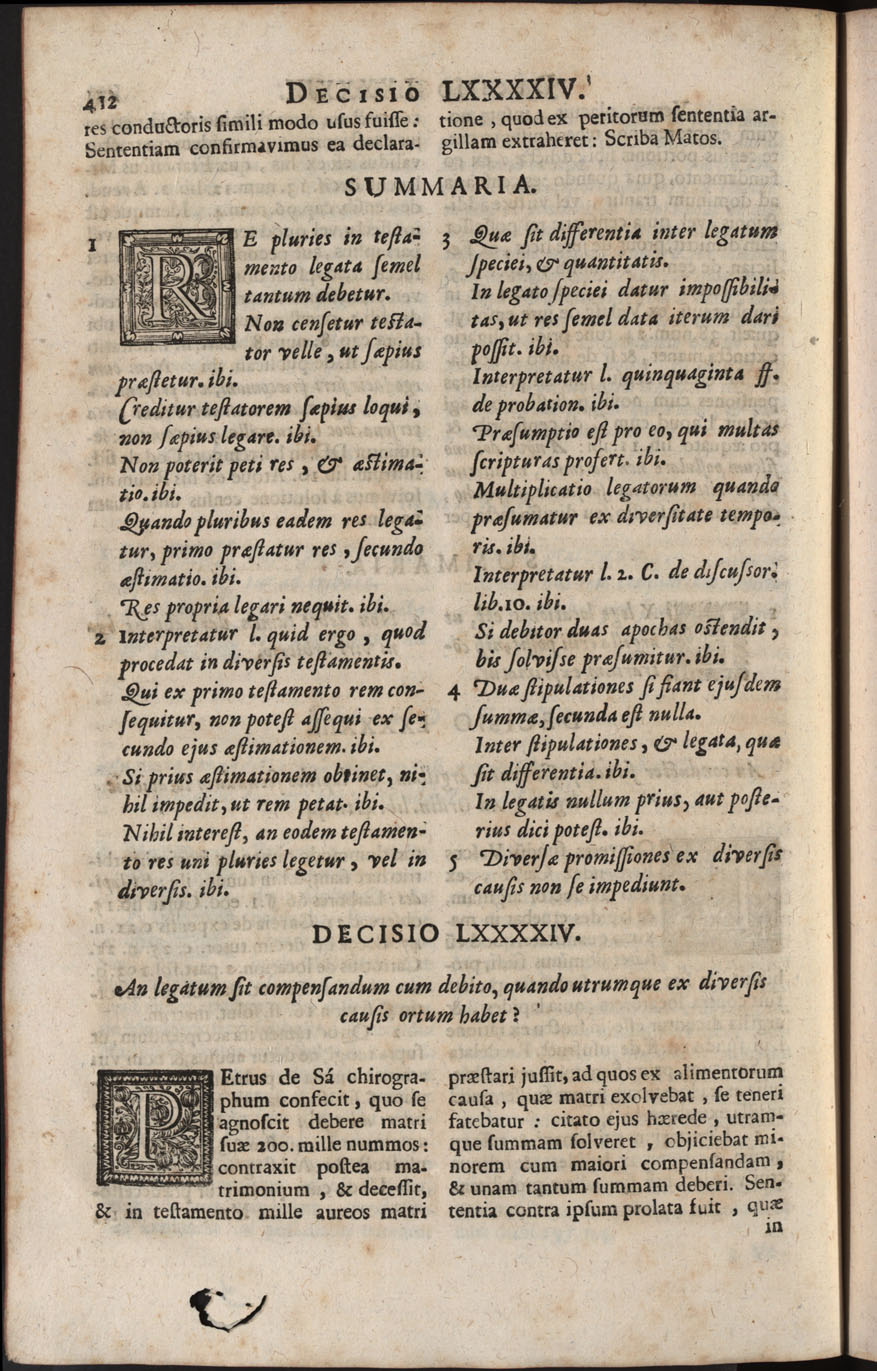 412
DECISIO LXXXXIV.
res conductoris simili modo usus fuisse:
Sententiam confirmavimus ea declara-
tione, quod ex peritorum sententia ar-
gillam extraheret: Scriba Matos.
SUMMARIA.
1 RE pluries in testa-
mento legata semel
tantum debetur.
Non censetur testa-
tor velle, ut sæpius
præstetur. ibi.
Creditur testatorem sæpius loqui,
non sæpius legare. ibi.
Non poterit peti res, & æstima-
tio. ibi.
Quando pluribus eadem res lega-
tur, primo præstatur res, secundo
æstimatio. ibi.
Res propria legari nequit. ibi.
2 Interpretatur l. quid ergo, quod
procedat in diversis testamentis.
Qui ex primo testamento rem con-
sequitur, non potest assequi ex se-
cundo ejus æstimationem. ibi.
Si prius æstimationem obtinet, ni-
hil impedit, ut rem petat. ibi.
Nihil interest, an eodem testamen-
to res uni pluries legetur, vel in
diversis. ibi.
3 Quæ sit differentia inter legatum
speciei, & quantitatis.
In legato speciei datur impossibili-
tas, ut res semel data iterum dari
possit. ibi.
Interpretatur l. quinquaginta ff.
de probation. ibi.
Præsumptio est pro eo, qui multas
scripturas profert. ibi.
Multiplicatio legatorum quando
præsumatur ex diversitate tempo-
ris. ibi.
Interpretatur l. 2. C. de discussor.
lib.10. ibi.
Si debitor duas apochas ostendit,
bis solvisse præsumitur. ibi.
4 Duæ stipulationes si fiant ejusdem
summæ, secunda est nulla.
Inter stipulationes, & legata, quæ
sit differentia. ibi.
In legatis nullum prius, aut poste-
rius dici potest. ibi.
5 Diversæ promissiones ex diversis
causis non se impediunt.
DECISIO LXXXXIV.
An legatum sit compensandum cum debito, quando utrumque ex diversis
causis ortum habet?
PEtrus de Sá chirogra-
phum confecit, quo se
agnoscit debere matri
suæ 200. mille nummos:
contraxit postea ma-
trimonium, & decessit,
& in testamento mille aureos matri
præstari jussit, ad quos ex alimentorum
causa, quæ matri exolvebat, se teneri
fatebatur: citato ejus hærede, utram-
que summam solveret, objiciebat mi-
norem cum maiori compensandam,
& unam tantum summam deberi. Sen-
tentia contra ipsum prolata fuit, quæ
in